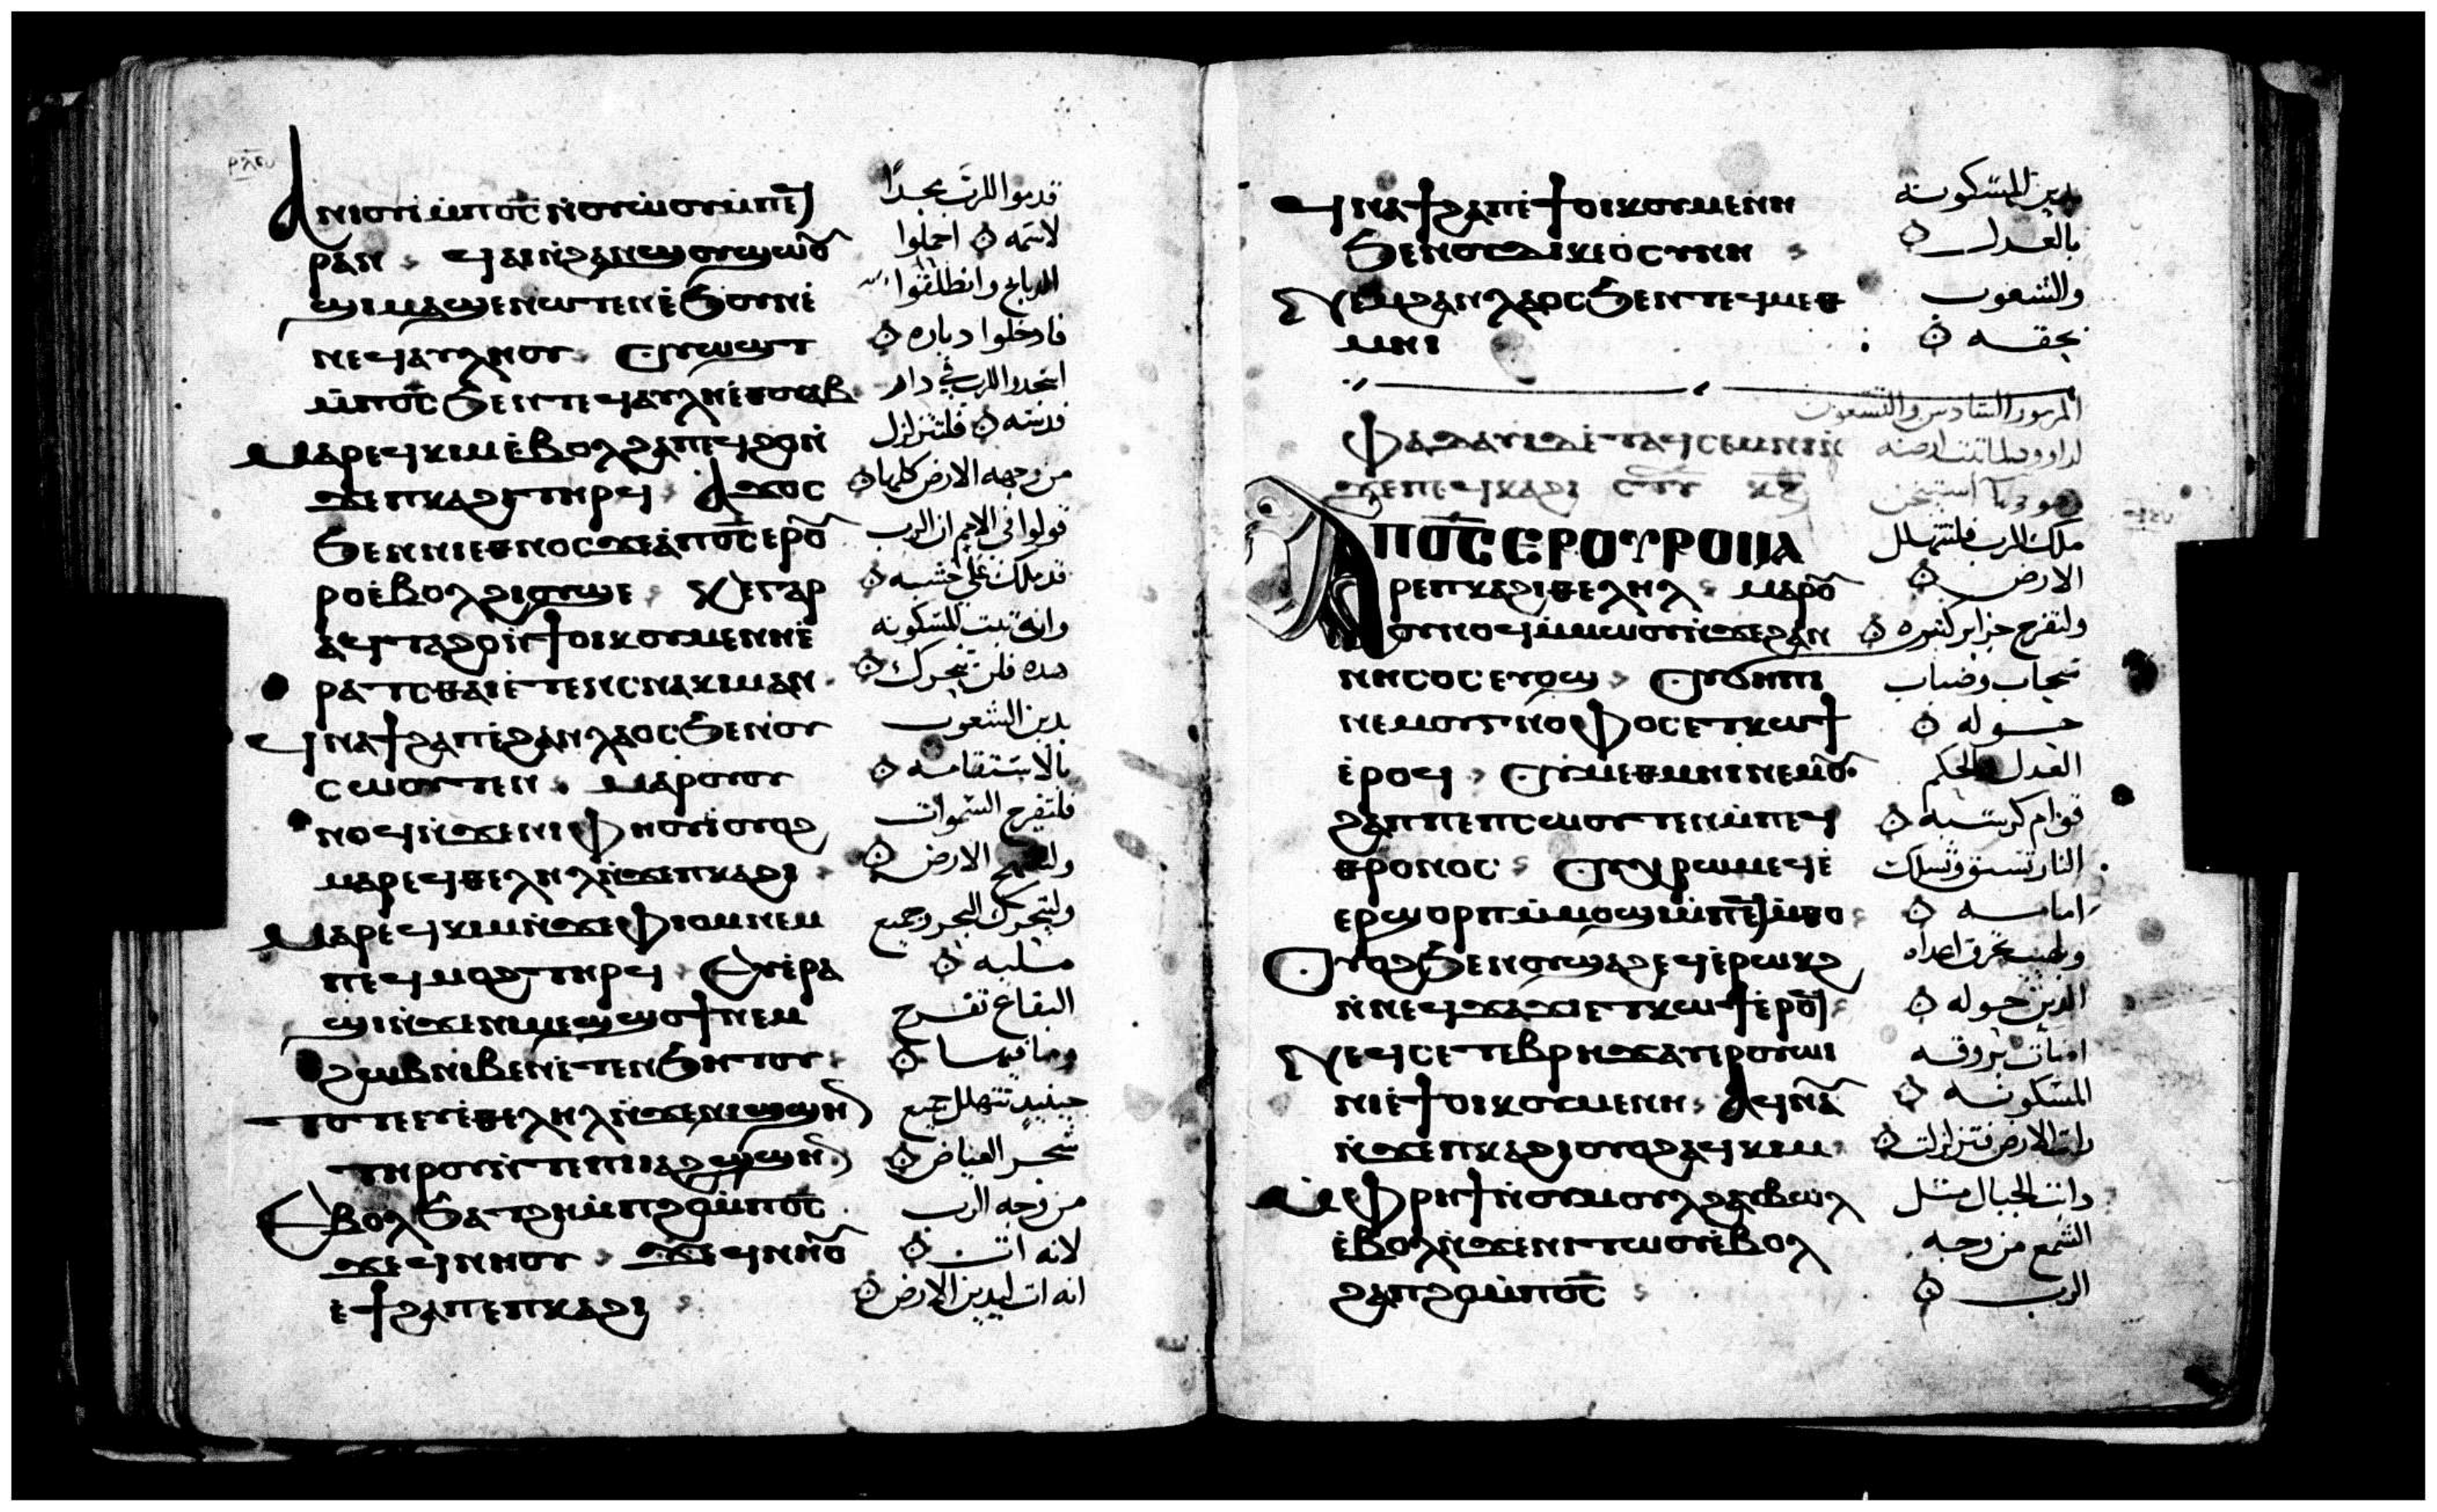 ⲁⲛⲓⲟⲩⲓ̀ⲙ̀ⲡⲟ̅ⲥ̅ ⲛ̀ⲟⲩⲱⲟⲩⲙ̀ⲡⲉϥ
ⲣⲁⲛ ϥⲁⲓⲛ̀ϩⲁⲛϣⲟⲩϣⲱⲟ̅
ϣⲓⲙⲁϣⲉⲛⲱⲧⲉⲛⲉ̀ϧⲟⲩⲛⲉ̀
ⲛⲉϥⲁⲩⲗⲏⲟⲩ ⲟⲩⲱϣⲧ
ⲙ̀ⲡⲟ̅ⲥ̅ ϧⲉⲛⲧⲉϥⲁⲩⲗⲏⲉ̀ⲑⲟⲩⲁⲃ
ⲙⲁⲣⲉϥⲕⲓⲙⲉ̀ⲃⲟⲗϩⲁⲡⲉϥϩⲟⲛ̀
ϫⲉⲡⲕⲁϩⲓⲧⲏⲣϥ ⲁϫⲟⲥ
ϧⲉⲛⲛⲓⲉⲑⲛⲟⲥϫⲉⲁ̀ⲡⲟ̅ⲥ̅ ⲉⲣⲟ̅
ⲣⲟⲉ̀ⲃⲟⲗϩⲓⲟⲩϣⲉ ⲕⲉⲅⲁⲣ
ⲁ̀ϥⲧⲁϩⲟⲛ̀ϯⲟⲓⲕⲟⲩⲙⲉⲛⲏⲉ̀
ⲣⲁⲧⲥⲑⲁⲓⲉ̀ⲧⲉⲛⲥⲛⲁⲕⲓⲙⲁⲛ
ϥⲛⲁϯϩⲁⲡⲉ̀ϩⲁⲛⲗⲁⲟⲥϧⲉⲛⲟⲩ
ⲥⲱⲟⲩⲧⲉⲛ ⲙⲁⲣⲟⲩⲟⲩ
ⲛⲟϥⲛ̀ϫⲉⲛⲓⲫⲏⲟⲩⲓ̀ⲟⲩⲟϩ
ⲙⲁⲣⲉϥⲑⲉⲗⲏⲗⲛ̀ϫⲉⲡⲕⲁϩⲓ
ⲙⲁⲣⲉϥⲕⲓⲙⲛ̀ϫⲉⲫⲓⲟⲙⲛⲉⲙ
ⲡⲉϥⲙⲟϩⲧⲏⲣϥ ⲉⲩⲉ̀ⲣⲁ
ϣⲓⲛ̀ϫⲉⲛⲓⲙⲉϣϣⲟϯⲛⲉⲙ
ϩⲱⲃⲛⲓⲃⲉⲛⲉ̀ⲧⲉⲛϧⲏⲧⲟⲩ
ⲧⲟⲧⲉⲉⲩⲉ̀ⲑⲉⲗⲏⲗⲛ̀ϫⲉⲛⲓϣϣⲏⲛ
ⲧⲏⲣⲟⲩⲛ̀ⲧⲉⲡⲓⲓⲁϩϣϣⲏⲛ
ⲉⲃⲟⲗϧⲁⲧϩⲏⲙ̀ⲡϩⲟⲙ̀ⲡⲟ̅ⲥ̅
ϫⲉϥⲛⲏⲟⲩ ϫⲉϥⲛⲏⲟ̅
ⲉϯϩⲁⲡⲉⲡⲕⲁϩⲓ
قدموا للرب مجداً
لاسمه احملوا
الدبايح وانطلقوا
فادخلوا دياره
اسجدوا للرب في دار
قدسه فلتتزلزل
من وجهه الارض كلها
قولوا في الامم ان الرب
قد ملك على خشبه
وانه ثبت المسكونه
هذه فلن تتحرك
يدين الشعوب
بالاستقامه
فلتفرح السموات
الارض
ولتتحرك البحر وجميع
مليه
البقاع تفرح
وما فيها
حينيد تتهلل جميع
شجر الغياض
من وجه الرب
لانه اتى
انه اتى ليدين الارض
ϥⲛⲁϯϩⲁⲡⲉ̀ϯⲟⲓⲕⲟⲩⲙⲉⲛⲏ
ϧⲉⲛⲟⲩⲇⲓⲕⲉⲟⲥⲩⲛⲏ
ⲛⲉⲙϩⲁⲛⲗⲁⲟⲥϧⲉⲛⲧⲉϥⲙⲉⲑ
ⲙⲏⲓ
ⲫⲁⲇⲁⲩⲓⲇⲉ̀ⲧⲁϥⲥⲉⲙⲛⲓⲛ̀
ϫⲉⲡⲉϥⲕⲁϩⲓ
ⲁⲡⲟ̅ⲥ̅ ⲉⲣⲟⲩⲣⲟⲙⲁ
ⲣⲉⲡⲕⲁϩⲓⲑⲉⲗⲏⲗ ⲙⲁⲣⲟ̅
ⲟⲩⲛⲟϥⲙ̀ⲙⲱⲟⲩⲛ̀ϫⲉϩⲁⲛ
ⲛⲏⲥⲟⲥⲉⲩⲟϣ ⲟⲩϭⲏⲡⲓ
ⲛⲉⲙⲟⲩⲅⲛⲟⲫⲟⲥⲉⲧⲕⲱϯ
ⲉ̀ⲣⲟϥ ⲟⲩⲙⲉⲑⲙⲏⲓⲛⲉⲙⲟ̅
ϩⲁⲡⲡⲉⲡⲥⲱⲟⲩⲧⲉⲛⲙ̀ⲡⲉϥ
ⲑⲣⲟⲛⲟⲥ ⲟⲩⲭⲣⲱⲙⲉϥⲉ̀
ⲉⲣϣⲟⲣⲡⲙ̀ⲙⲟϣⲓⲙ̀ⲡⲉϥⲙ̀ⲑⲟ
ⲟⲩⲟϩϧⲉⲛⲟⲩϣⲁϩⲉϥⲉ̀ⲣⲱⲕϩ
ⲛ̀ⲛⲉϥϫⲁϫⲓⲉⲧⲕⲱϯⲉ̀ⲣⲟϥ
ⲛⲉϥⲥⲉⲧⲉⲃⲣⲏϫⲁⲩⲉⲣⲟⲩⲱⲓ
ⲛⲓⲉ̀ϯⲟⲓⲕⲟⲩⲙⲉⲛⲏ ⲁϥⲛⲁ̅
ⲛ̀ϫⲉⲡⲕⲁϩⲓⲟⲩⲟϩⲁϥⲕⲓⲙ
ⲙ̀ⲫⲣⲏϯⲛ̀ⲟⲩⲙⲟⲩⲗϩⲁⲩⲃⲱⲗ
ⲉ̀ⲃⲟⲗⲛ̀ϫⲉⲛⲓⲧⲱⲟⲩⲉ̀ⲃⲟⲗ
ϩⲁⲡϩⲟⲙ̀ⲡⲟ̅ⲥ̅
يدين المسكونه
بالعدل
والشعوب
بحقه
المزمور السادس والتسعون
لداوود
ملك الرب فلتتهلل
الارض
ولتفرح جزاير كثيره
سحاب وضباب
حوله
العدل والحكم
قوام كرسيه
النار تسبق وتسلك
امامه
ولهيب يحرق اعداه
الذين حوله
اضات بروقه
المسكونه
رات الارض فتزلزلت
ذابت الجبال مثل
الشمع من وجه
الرب